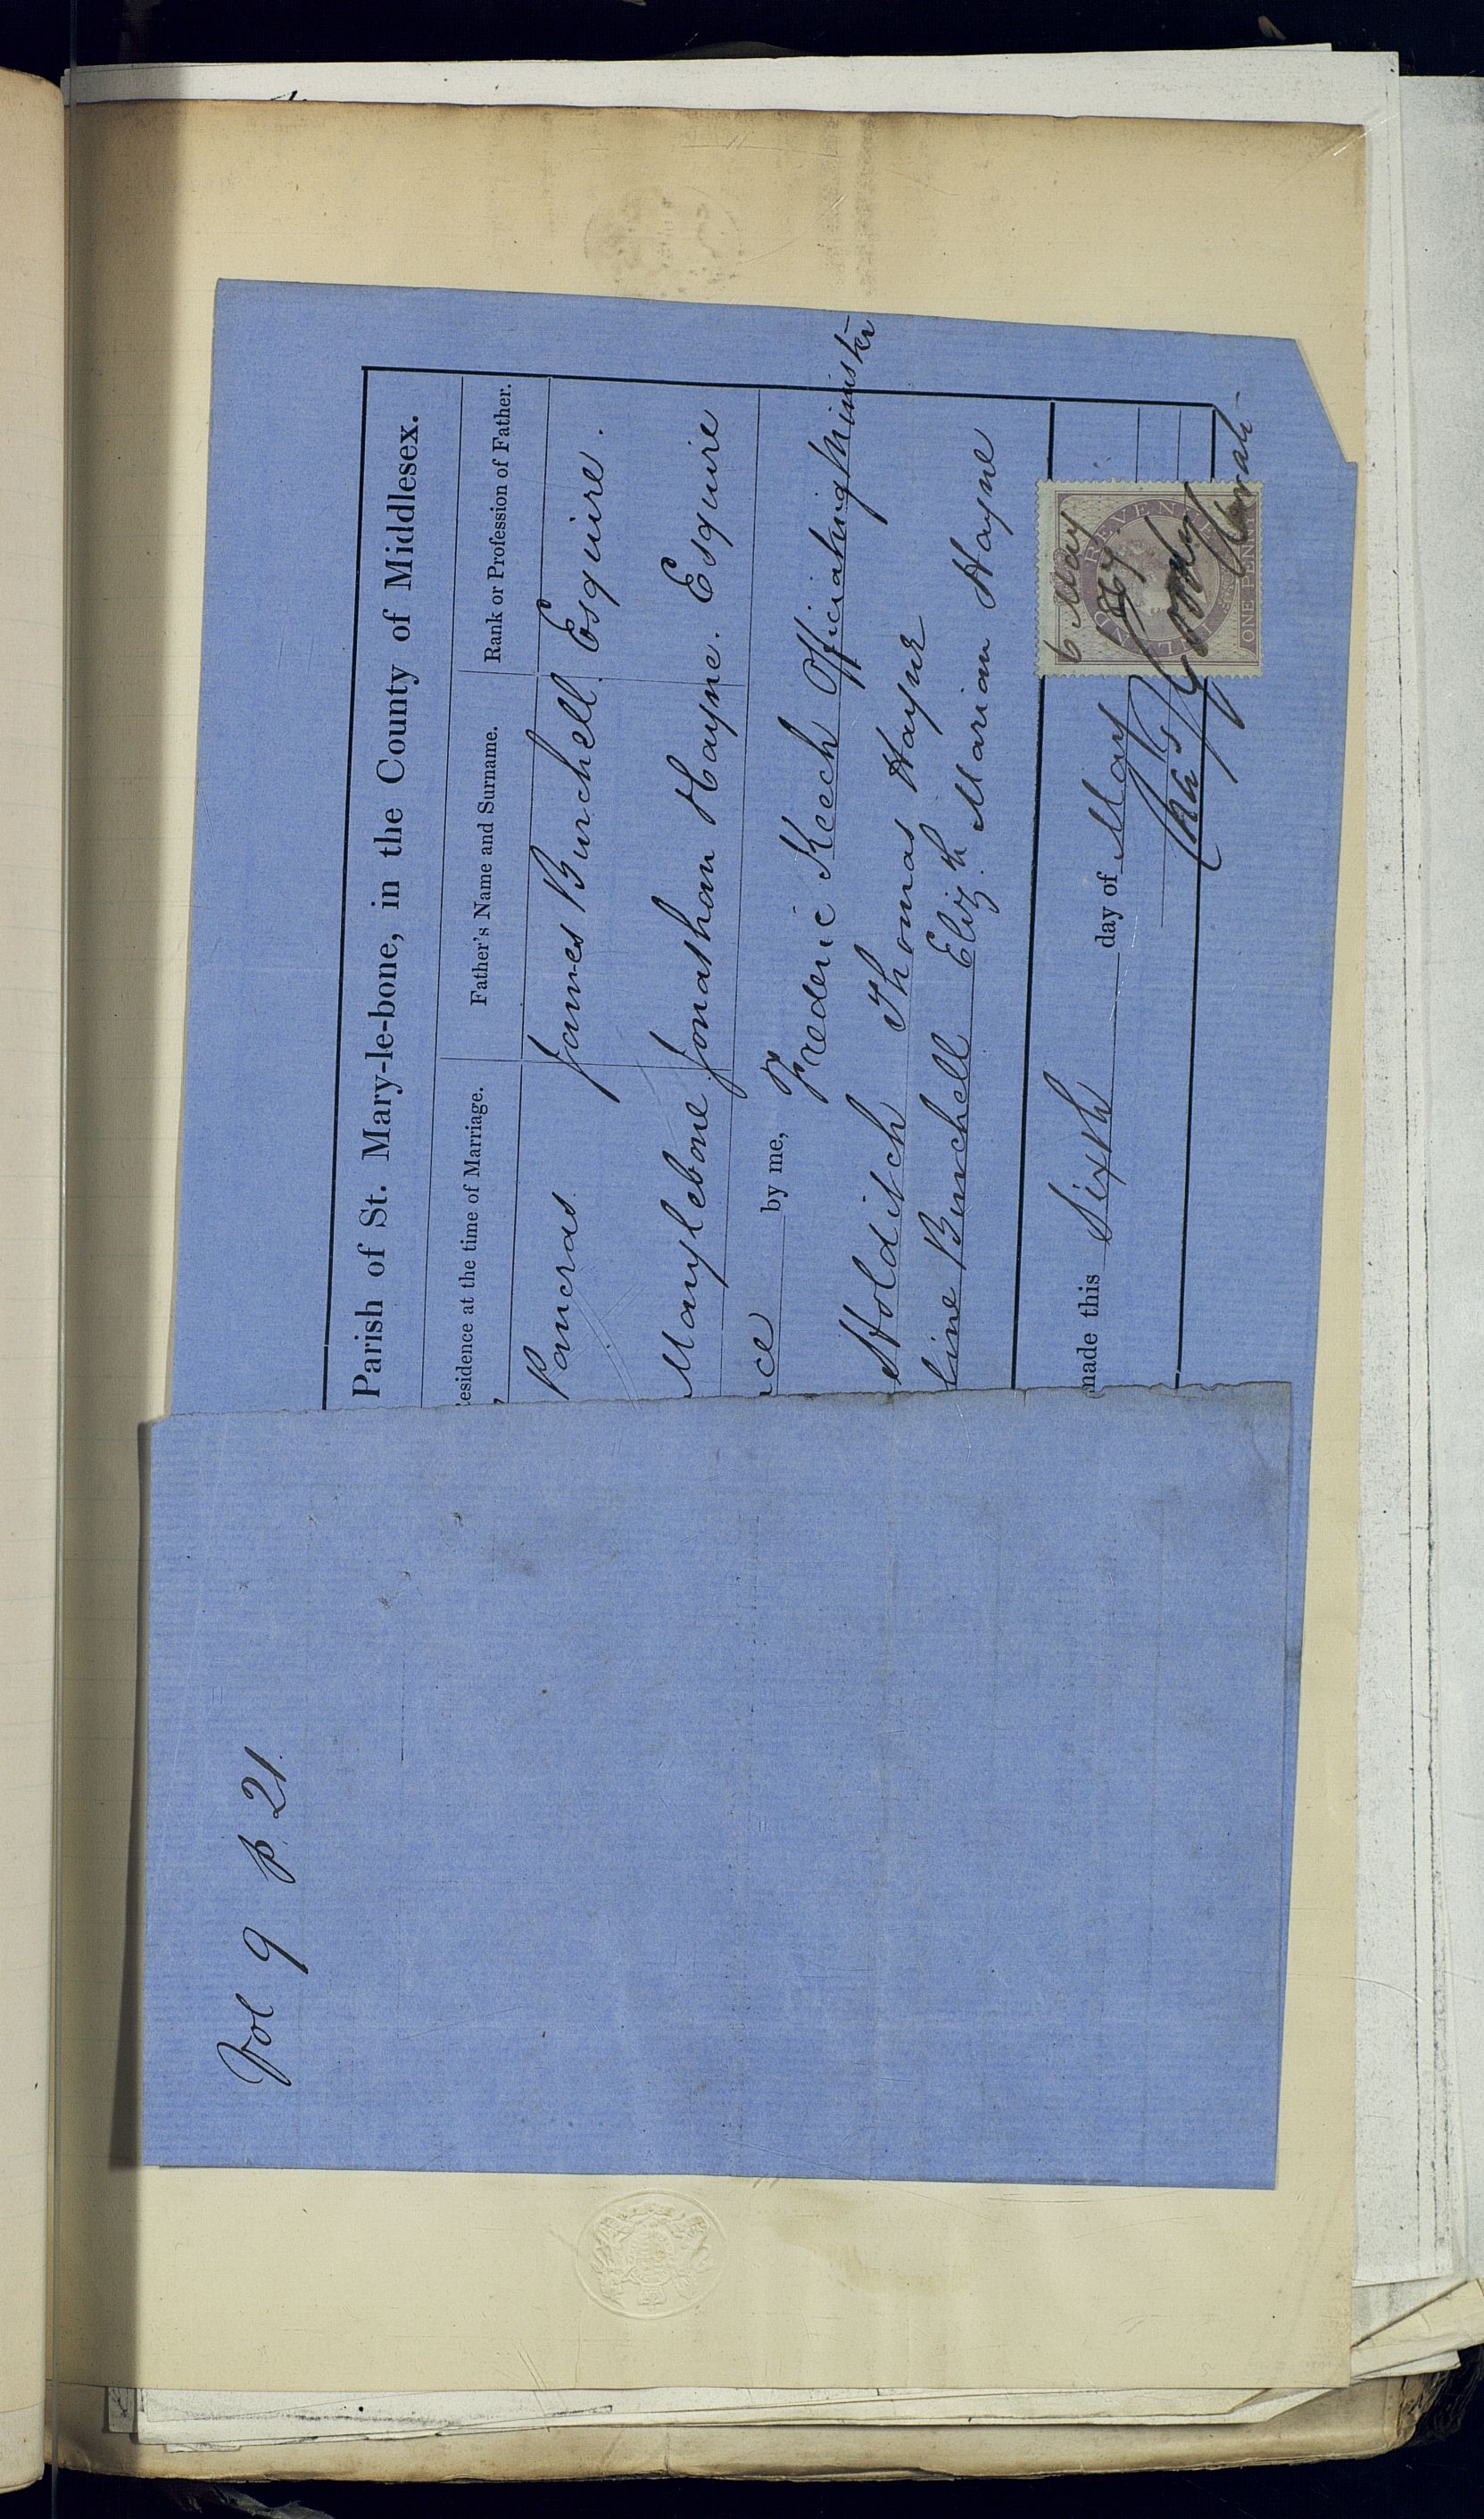 Parish of St. Mary-le-bone, in the County of Middlesex.
esidence at the time of Marriage. Father's Name and Surname. Rank or Profession of Father.
Pancras James Burchell Esquire.
Marylebone Jonathan Hayne. Esquire
ce by me, Frederic Keech Officiating Minister
Holditch Thomas Hayne
line Burchell Elizth Marian Hayne
made this Sixth day of May
6 May
REVENUE
ONE PENNY
Chas
Vol 9 p. 21.